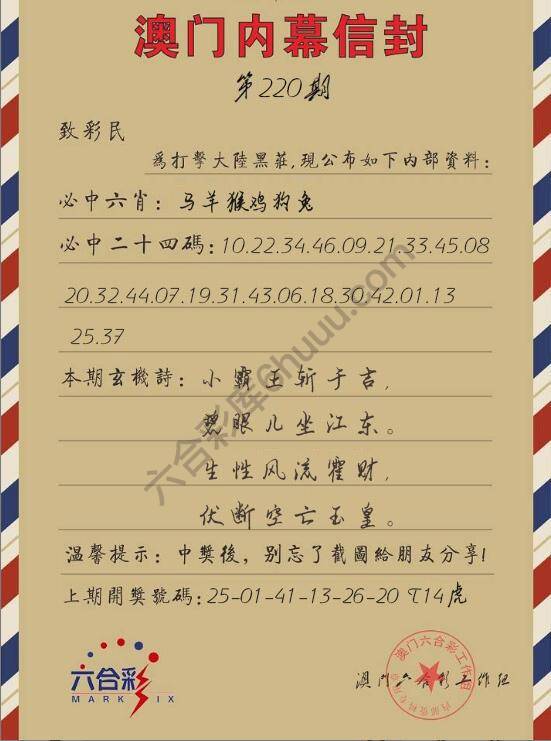 澳门内幕信封
第220期
致彩民
為打擊大陸黑莊,現公布如下內部資料:
必中六肖: 马羊猴鸡狗兔
必中二十四碼:10.22.34.46.09.21.33.45.08
20.32.44.07.19.31.43.06.18.30.42.01.13
25.37
本期玄機詩: 小霸王斩于吉,
碧眼儿坐江东。
生性风流霍财,
伏断空亡玉皇。
温馨提示: 中獎後, 别忘了截圖給朋友分享!
上期開獎號碼:25-01-41-13-26-20 T14虎
六合彩
MARK SIX
澳门六合彩工作组
澳门六合彩工作组
六合彩库6huuu.com